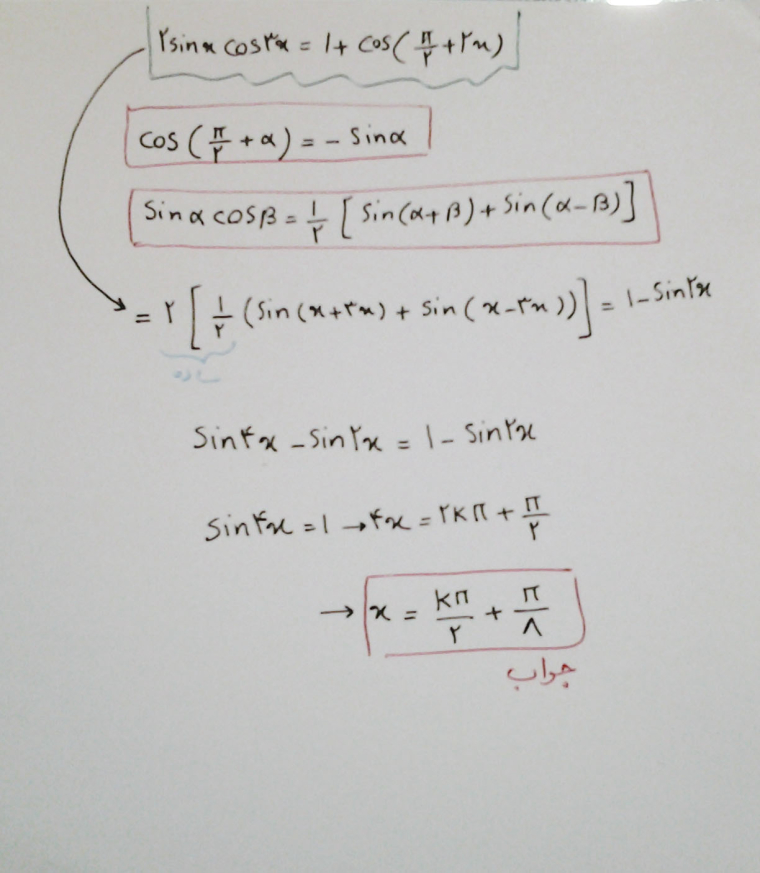 ۲sinx cos۳x = ۱ + cos(π/۲ + ۲x)
cos(π/۲ + α) = - sinα
Sinα cosβ = ۱/۲ [sin(α+β) + sin(α-β)]
= ۲[۱/۲ (sin(x+۳x) + sin(x-۳x))] = ۱-sin۲x
ساده
Sin۴x - sin۲x = ۱ - sin۲x
Sin۴x = ۱ → ۴x = ۲kπ + π/۲
→ x = kπ/۲ + π/۸
جواب